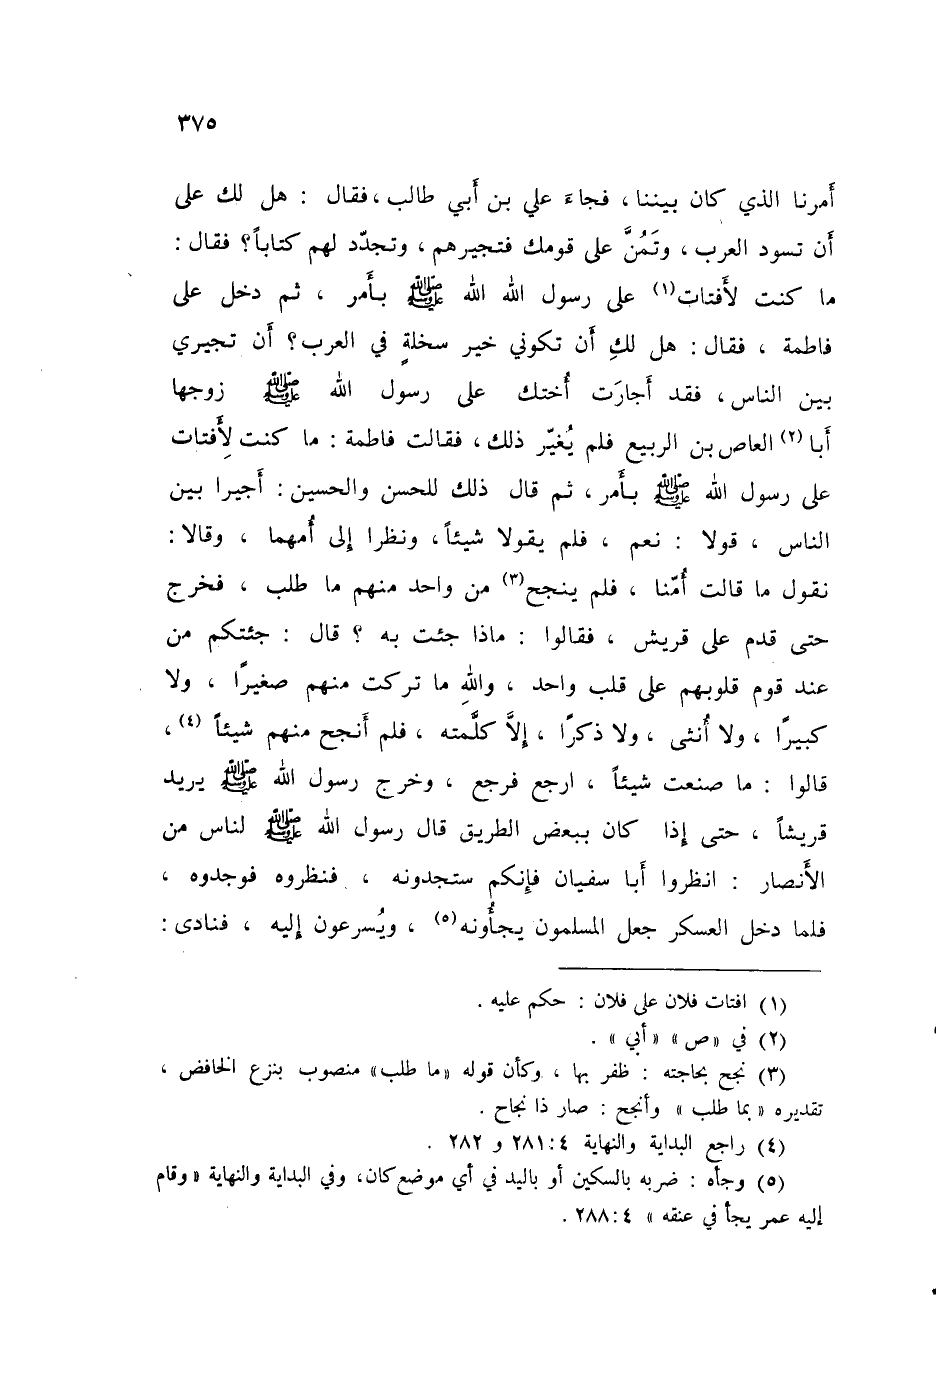 ٣٧٥
أَمرنا الذي كان بيننا ، فجاءَ علي بن أَبي طالب ، فقال : هل لك على
أَن تسود العرب ، وتَمُنَّ على قومك فتجيرهم ، وتجدّد لهم كتاباً؟ فقال :
ما كنت لأَفتات(١) على رسول الله الله ﷺ بأَمر ، ثم دخل على
فاطمة ، فقال : هل لكِ أَن تكوني خير سخلةٍ في العرب؟ أَن تجيري
بين الناس ، فقد أَجارَت أُختك على رسول الله ﷺ زوجها
أَبا(٢) العاص بن الربيع فلم يُغيّر ذلك ، فقالت فاطمة : ما كنت لِأَفتات
على رسول الله ﷺ بأَمر ، ثم قال ذلك للحسن والحسين : أَجيرا بين
الناس ، قولا : نعم ، فلم يقولا شيئاً ، ونظرا إلى أُمهما ، وقالا :
نقول ما قالت أُمّنا ، فلم ينجح(٣) من واحد منهم ما طلب ، فخرج
حتى قدم على قريش ، فقالوا : ماذا جئت به ؟ قال : جئتكم من
عند قوم قلوبهم على قلب واحد ، واللهِ ما تركت منهم صغيرًا ، ولا
كبيرًا ، ولا أُنثى ، ولا ذكرًا ، إلاَّ كلَّمته ، فلم أَنجح منهم شيئاً(٤) ،
قالوا : ما صنعت شيئاً ، ارجع فرجع ، وخرج رسول الله ﷺ يريد
قريشاً ، حتى إذا كان ببعض الطريق قال رسول الله ﷺ لناس من
الأَنصار : انظروا أَبا سفيان فإنكم ستجدونه ، فنظروه فوجدوه ،
فلما دخل العسكر جعل المسلمون يجأُونه(٥) ، ويُسرعون إليه ، فنادى :
(١) افتات فلان على فلان : حكم عليه .
(٢) في «ص» «أبي» .
(٣) نجح بحاجته : ظفر بها ، وكأن قوله «ما طلب» منصوب بنزع الخافض ،
تقديره « بما طلب » وأنجح : صار ذا نجاح .
(٤) راجع البداية والنهاية ٤ : ٢٨١ و ٢٨٢ .
(٥) وجأه : ضربه بالسكين أو باليد في أي موضع كان، وفي البداية والنهاية « وقام
إليه عمر يجأ في عنقه » ٤ : ٢٨٨ .